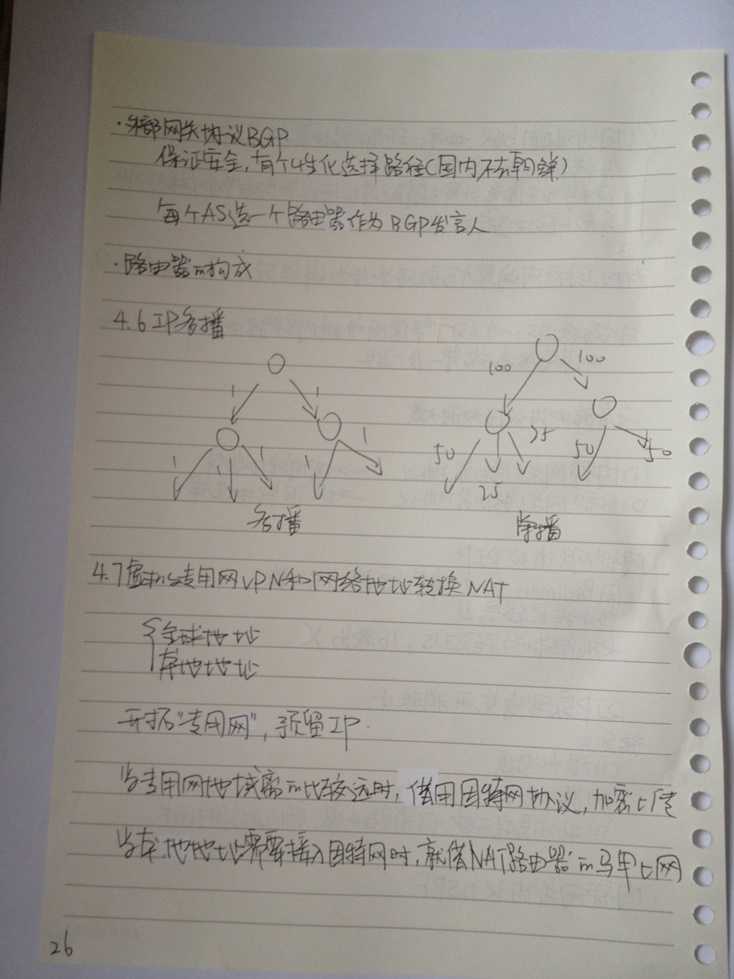 ·外部网关协议BGP
保证安全,有个性化选择路径(国内不去朝鲜)
每个AS选一个路由器作为BGP发言人
·路由器的构成
4.6 IP多播
100 100
1 1
50 25 50 50
1 1 1 1 1
25
多播 单播
4.7虚拟专用网VPN和网络地址转换NAT
全球地址
本地地址
开拓"专用网",预留IP.
当专用网地域离的比较远时,借用因特网协议,加密上传
当本地地址需要接入因特网时,就借NAT路由器的马甲上网
26